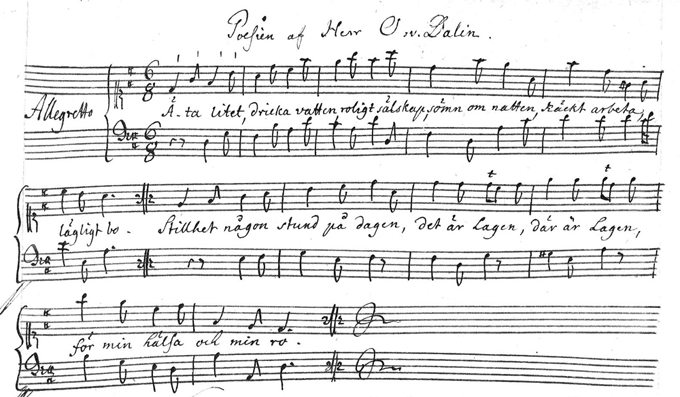 Poesien af Herr O. v. Dalin.
Allegretto
Äta litet, dricka vatten roligt sälskap, sömn om natten, käckt arbeta,
lägligt bo. Stillhet någon stund på dagen, det är Lagen, där är Lagen,
för min hälsa och min ro.